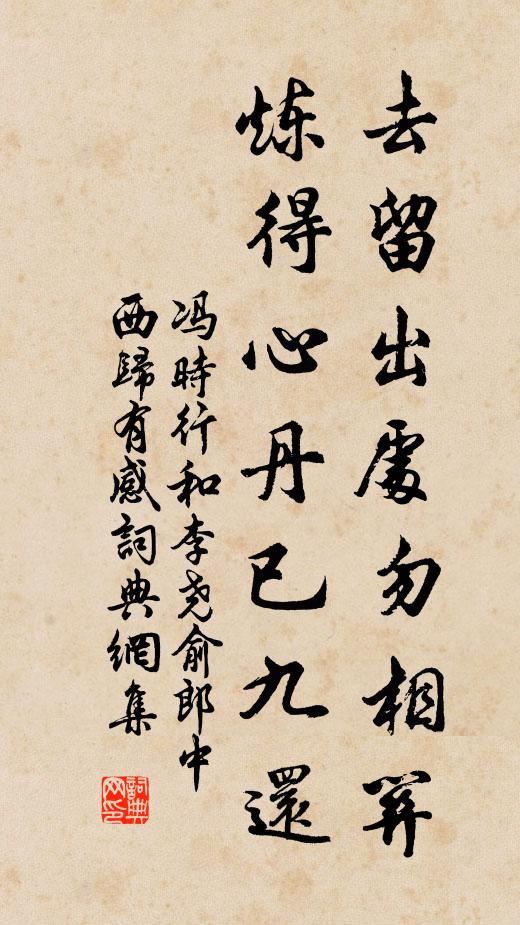 去留出處勿相關
炼得心丹已九還
冯時行和李尧俞郎中
西歸有感詞典網集
詞典网印